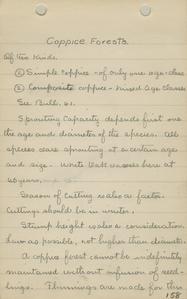 Coppice Forests.
Of two kinds.
① Simple coppice - of only one age-class
② Composite coppice - mixed age classes
See Bull. 61.
Sprouting Capacity depends first one
the age and diameter of the species. All
species cease sprouting at a certain age
and size - White Oak ceases here at
40 years.
Season of cutting is also a factor.
Cuttings should be in winter.
Stump height is also a consideration,
low as possible, not higher than diameter.
A coppice forest cannot be indefinitely
maintained without infusion of seed-
lings. Thinnings are made for this
158